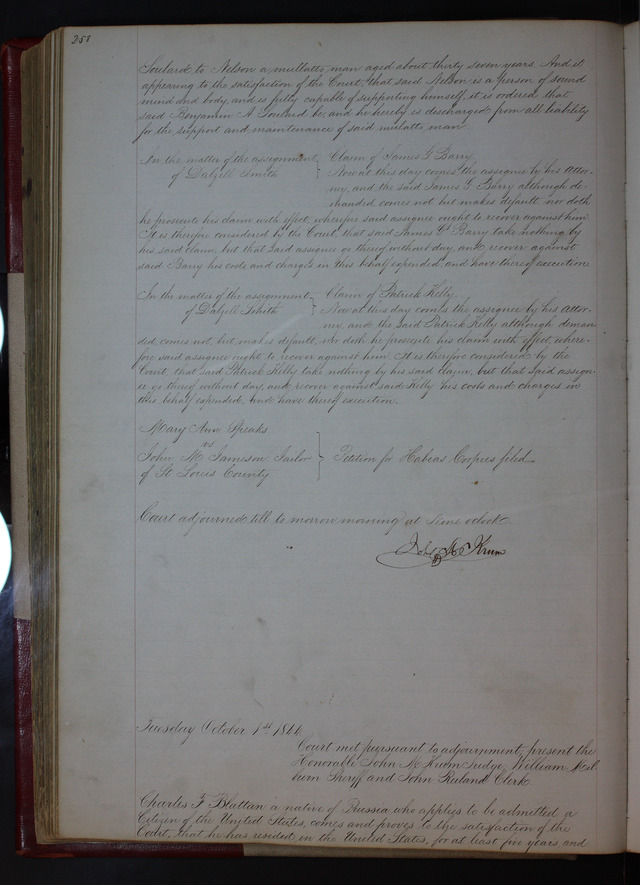 258
Soulard to Nelson a mullatto man aged about thirty seven years. And it
appearing to the satisfaction of the Court, that said Nelson is a person of sound
mind and body, and is fully capable of supporting himself, it is ordered that
said Benjamin A Soulard be, and he hereby is discharged from all liability
for the support and maintenance of said mulatto man
In the matter of the assignment } Claim of James G Barry
of Dalzell Smith Now at this day comes the assignee by his Attor-
ney, and the said James G Barry although de-
manded comes not but makes default, nor doth
he prosecute his claim with effect, wherefore said assignee ought to recover against him.
It is therefore considered by the Court, that said James G Barry take nothing by
his said claim, but that said assignee go thereof without day, and recover against
said Barry his costs and charges in this behalf expended, and have thereof execution
In the matter of the assignment } Claim of Patrick Kelly.
of Dalzell Smith Now at this day comes the assignee by his Attor-
ney, and the said Patrick Kelly although deman
ded comes not, but makes default, nor doth he prosecute his claim with effect, where-
fore said assignee ought to recover against him. It is therefore considered by the
Court, that said Patrick Kelly take nothing by his said claim, but that said assign-
ee go thereof without day, and recover against said Kelly his costs and charges in
this behalf expended, and have thereof execution.
Mary Ann Speaks
vs
John M Jameson Jailor } Petition for Habeas Corpus filed
of St Louis County
Court adjourned till to morrow morning at nine oclock.
John M Krum
Tuesday October 1st 1844
Court met pursuant to adjournment, present the
Honorable John M Krum Judge, William
burn Sheriff and John Ruland Clerk
Charles F Blattan a native of Prussia who applies to be admitted a
Citizen of the United States, comes and proves to the satisfaction of the
Court, that he has resided in the United States, for at least five years and